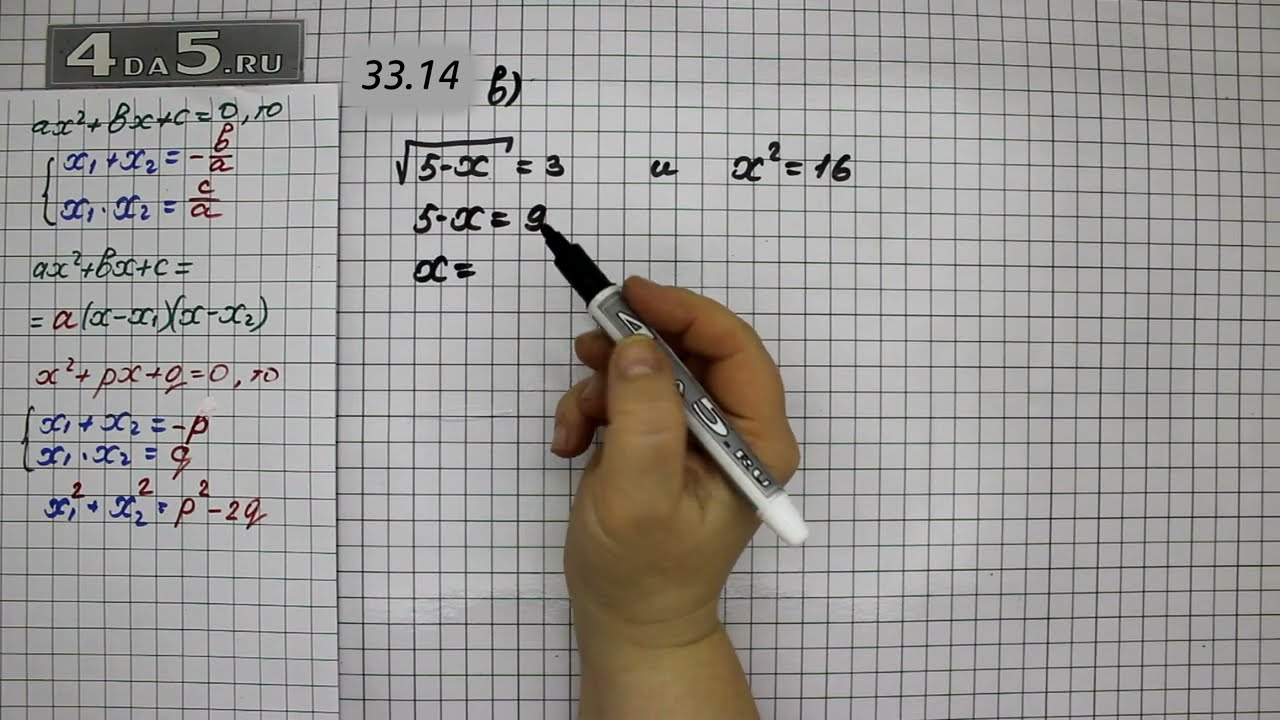 4DA5.RU
ax²+bx+c=0, то
x₁+x₂=-b/a
x₁·x₂=c/a
ax²+bx+c=
=a(x-x₁)(x-x₂)
x²+px+q=0, то
x₁+x₂=-p
x₁·x₂=q
x₁²+x₂²=p²-2q
33.14 в)
√(5-x)=3 и x²=16
5-x=9
x=